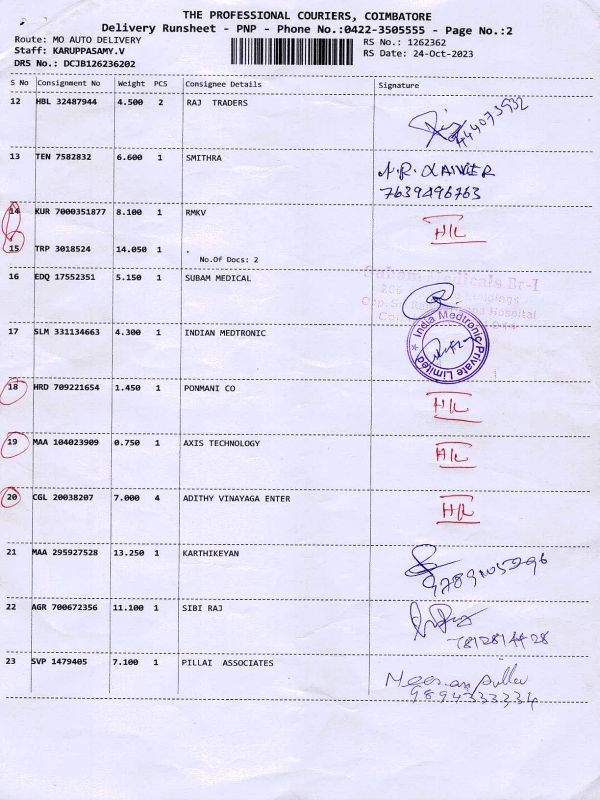 THE PROFESSIONAL COURIERS, COIMBATORE
Delivery Runsheet - PNP - Phone No.:0422-3505555 - Page No.:2
Route: MO AUTO DELIVERY RS No.: 1262362
Staff: KARUPPASAMY.V RS Date: 24-Oct-2023
DRS No.: DCJB126236202
S No Consignment No Weight PCS Consignee Details Signature
12 HBL 32487944 4.500 2 RAJ TRADERS
13 TEN 7582832 6.600 1 SMITHRA
7639496763
14 KUR 7000351877 8.100 1 RMKV H/L
15 TRP 3018524 14.050 1 .
No.Of Docs: 2
16 EDQ 17552351 5.150 1 SUBAM MEDICAL
Subam Medicals Br-I
17 SLM 331134663 4.300 1 INDIAN MEDTRONIC
India Medtronic Private Limited
18 HRD 709221654 1.450 1 PONMANI CO H/L
19 MAA 104023909 0.750 1 AXIS TECHNOLOGY H/L
20 CGL 20038207 7.000 4 ADITHY VINAYAGA ENTER H/L
21 MAA 295927528 13.250 1 KARTHIKEYAN
22 AGR 700672356 11.100 1 SIBI RAJ
7812814428
23 SVP 1479405 7.100 1 PILLAI ASSOCIATES
9894333334